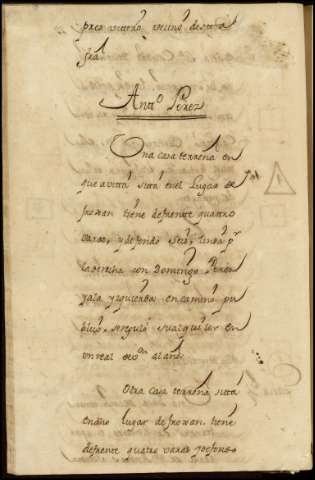 pres vitero, vecino de
Antº Perez
Una casa terrena en
que avita sita en el Lugar de
frowan tiene de frente quattro
varas, y de fondo seis, linda pr
la derecha con Domingo Peres
yala yzquierda en camino pu
blico, se regulo su alquiler en
un real de von al año.
Otra casa terrena sita
en dho lugar de frowan, tiene
de frente quatro varas y de fondo